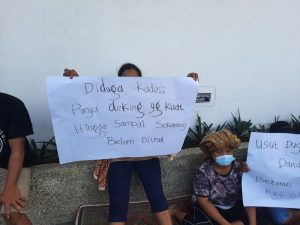 Diduga Kades
Punya deking yg Kuat
Hingga Sampai Sekarang
Belum Diusut
Usut Dug
Dana